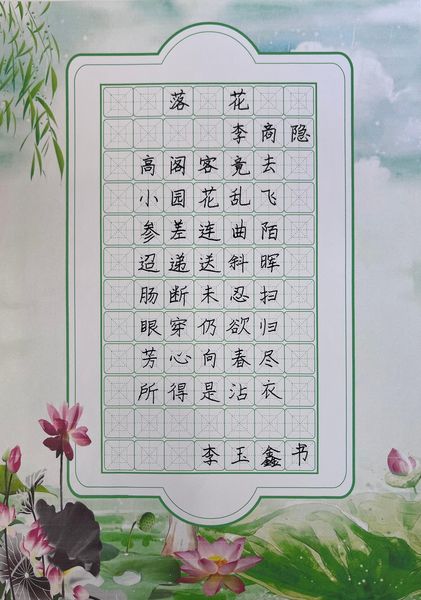 落花
李商隐
高阁客竟去
小园花乱飞
参差连曲陌
迢递送斜晖
肠断未忍扫
眼穿仍欲归
芳心向春尽
所得是沾衣
李玉鑫书